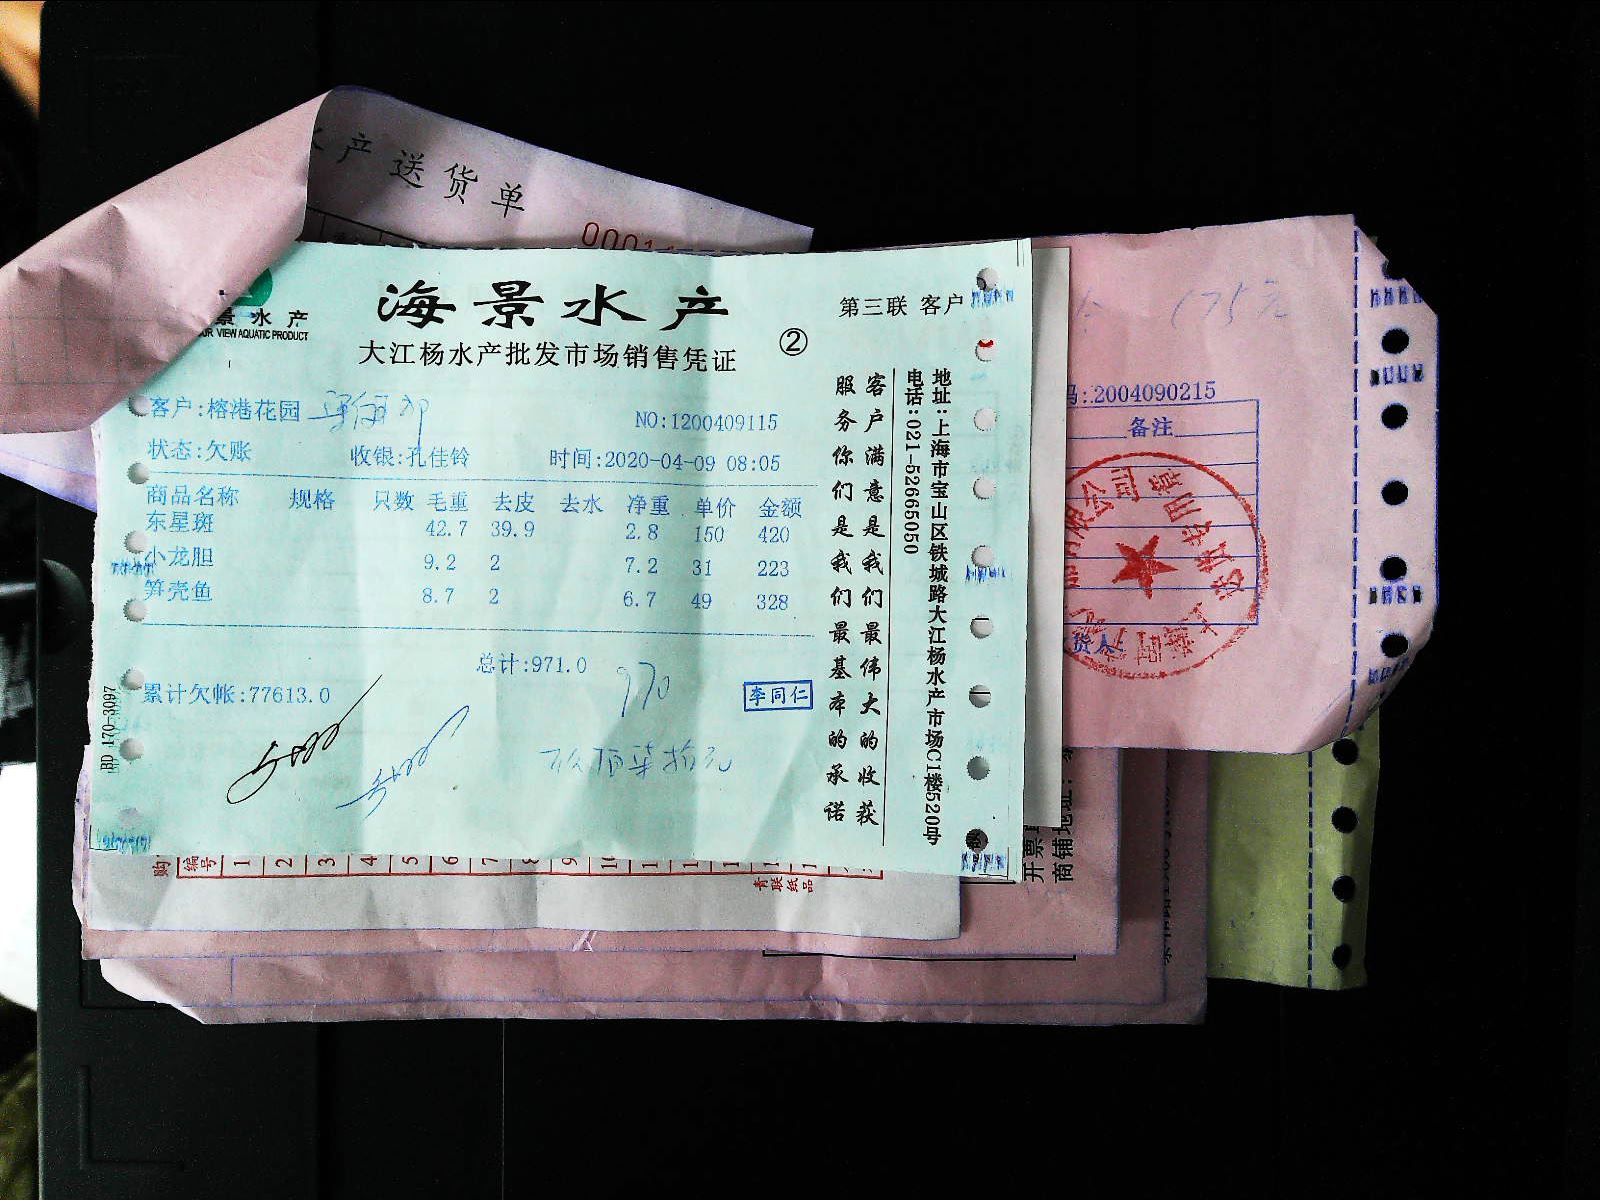 产送货单
海景水产
景水产
OUR VIEW AQUATIC PRODUCT
大江杨水产批发市场销售凭证
②
第三联 客户
客户:榕港花园
NO:1200409115
状态:欠账 收银:孔佳铃 时间:2020-04-09 08:05
商品名称 规格 只数 毛重 去皮 去水 净重 单价 金额
东星斑 42.7 39.9 2.8 150 420
小龙胆 9.2 2 7.2 31 223
笋壳鱼 8.7 2 6.7 49 328
总计:971.0
970
累计欠帐:77613.0
李同仁
玖佰柒拾元
客户满意是我们最伟大的收获
服务你们是我们最基本的承诺
地址:上海市宝山区铁城路大江杨水产市场C1楼520号
电话:021-52665050
BD 170-3097
175元
码:2004090215
备注
货人:
购
编号
1 2 3 4 5 6 7 8 9
青联纸品
开票
商铺地址: